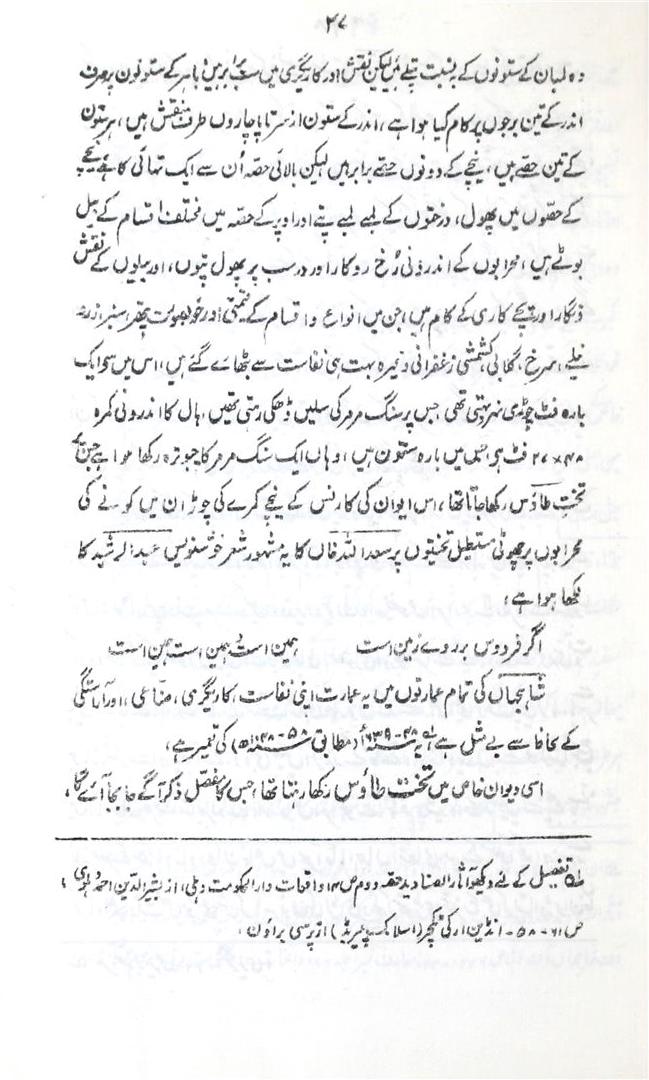 ۲۷
وہ لمبان کے ستونوں کے بہ نسبت پتلے ہیں لیکن نقش اور کاریگری میں سب برابر ہیں باہر کے ستونوں پر صرف
اندر کے تین برجوں پر کام کیا ہوا ہے، اندر کے ستون از سرتاپا چاروں طرف منقش ہیں، ہر ستون
کے تین حصے ہیں، نیچے کے دونوں حصے برابر ہیں لیکن بالائی حصہ اُن سے ایک تہائی کا ہے نیچے
کے حصوں میں پھول، درختوں کے لمبے لمبے پتے اور اوپر کے حصہ میں مختلف اقسام کے بیل
بوٹے ہیں، محرابوں کے اندرونی رُخ روکار اور در سب پر پھول پتیوں، اور بیلوں کے نقش
و نگار اور پچے کاری کے کام ہیں، جن میں انواع و اقسام کے قیمتی اور خوبصورت پتھر سبز، زرد
نیلے، سرخ، گلابی، کشمشی زعفرانی وغیرہ بہت ہی نفاست سے بٹھائے گئے ہیں، اس میں سے ایک
بارہ فٹ چوڑی نہر بہتی تھی جس پر سنگ مرمر کی سلیں ڈھکی رہتی تھیں، ہال کا اندرونی کمرہ
۴۸×۲۷ فٹ ہے، اس میں بارہ ستون ہیں، وہاں ایک سنگ مرمر کا چبوترہ رکھا ہوا ہے جس پر
تخت طاؤس رکھا جاتا تھا، اس ایوان کی کارنس کے نیچے کمرے کی چوڑان میں کونے کی
محرابوں پر چھوٹی مستطیل تختیوں پر سعد اللہ خاں کا یہ مشہور شعر خوشنویس عبد الرشید کا
لکھا ہوا ہے،
اگر فردوس بر روے زمین است ہمین است و ہمین است ہمین است
شاہجہاں کی تمام عمارتوں میں یہ عمارت اپنی نفاست، کاریگری، صناعی، اور آراستگی
کے لحاظ سے بے مثل ہے، یہ ۴۸-۱۶۳۹ء (مطابق ۵۸-۱۰۴۸ھ) کی تعمیر ہے،
اسی دیوان خاص میں تخت طاؤس رکھا رہتا تھا، جس کا مفصل ذکر آگے جا بجا آئے گا،
تفصیل کے لئے دیکھو آثار الصنادید حصہ دوم ص ۱۴، واقعات دارالحکومت دہلی، از بشیر الدین احمد دہلوی،
ص ۶۱-۵۸، انڈین آرکی ٹکچر (اسلامک پیریڈ) از پرسی براؤن،